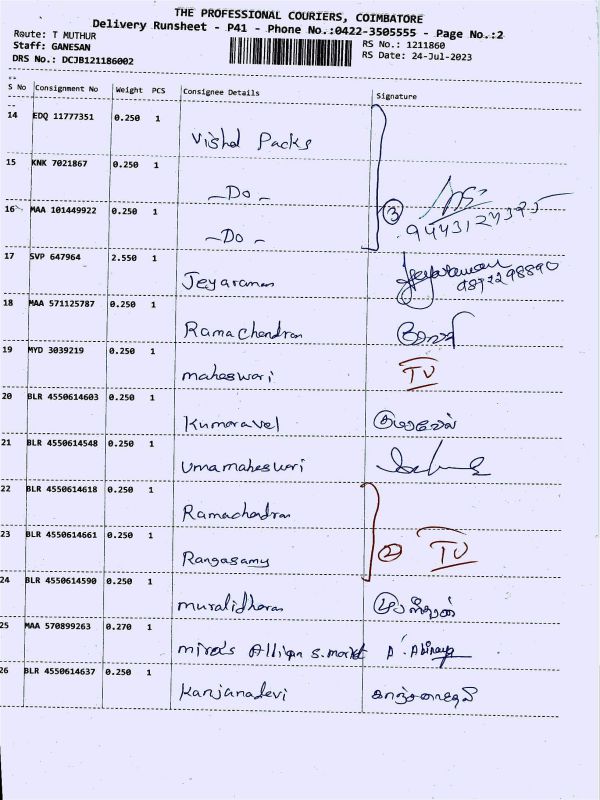 THE PROFESSIONAL COURIERS, COIMBATORE
Delivery Runsheet - P41 - Phone No.:0422-3505555 - Page No.:2
Route: T MUTHUR
Staff: GANESAN
RS No.: 1211860
DRS No.: DCJB121186002
RS Date: 24-Jul-2023
S No Consignment No Weight PCS Consignee Details Signature
14 EDQ 11777351 0.250 1
Vishal Packs
15 KNK 7021867 0.250 1
- Do -
16 MAA 101449922 0.250 1
- Do - ③
17 SVP 647964 2.550 1
Jeyaraman Jeyaraman
18 MAA 571125787 0.250 1
Ramachandran
19 MYD 3039219 0.250 1
maheswari TV
20 BLR 4550614603 0.250 1
Kumaravel குமரவேல்
21 BLR 4550614548 0.250 1
Umamaheswari
22 BLR 4550614618 0.250 1
Ramachandran
23 BLR 4550614661 0.250 1
Rangasamy ② TV
24 BLR 4550614590 0.250 1
muralidharan
25 MAA 570899263 0.270 1
A. Abinaya
26 BLR 4550614637 0.250 1
Kanjanadevi காஞ்சனாதேவி